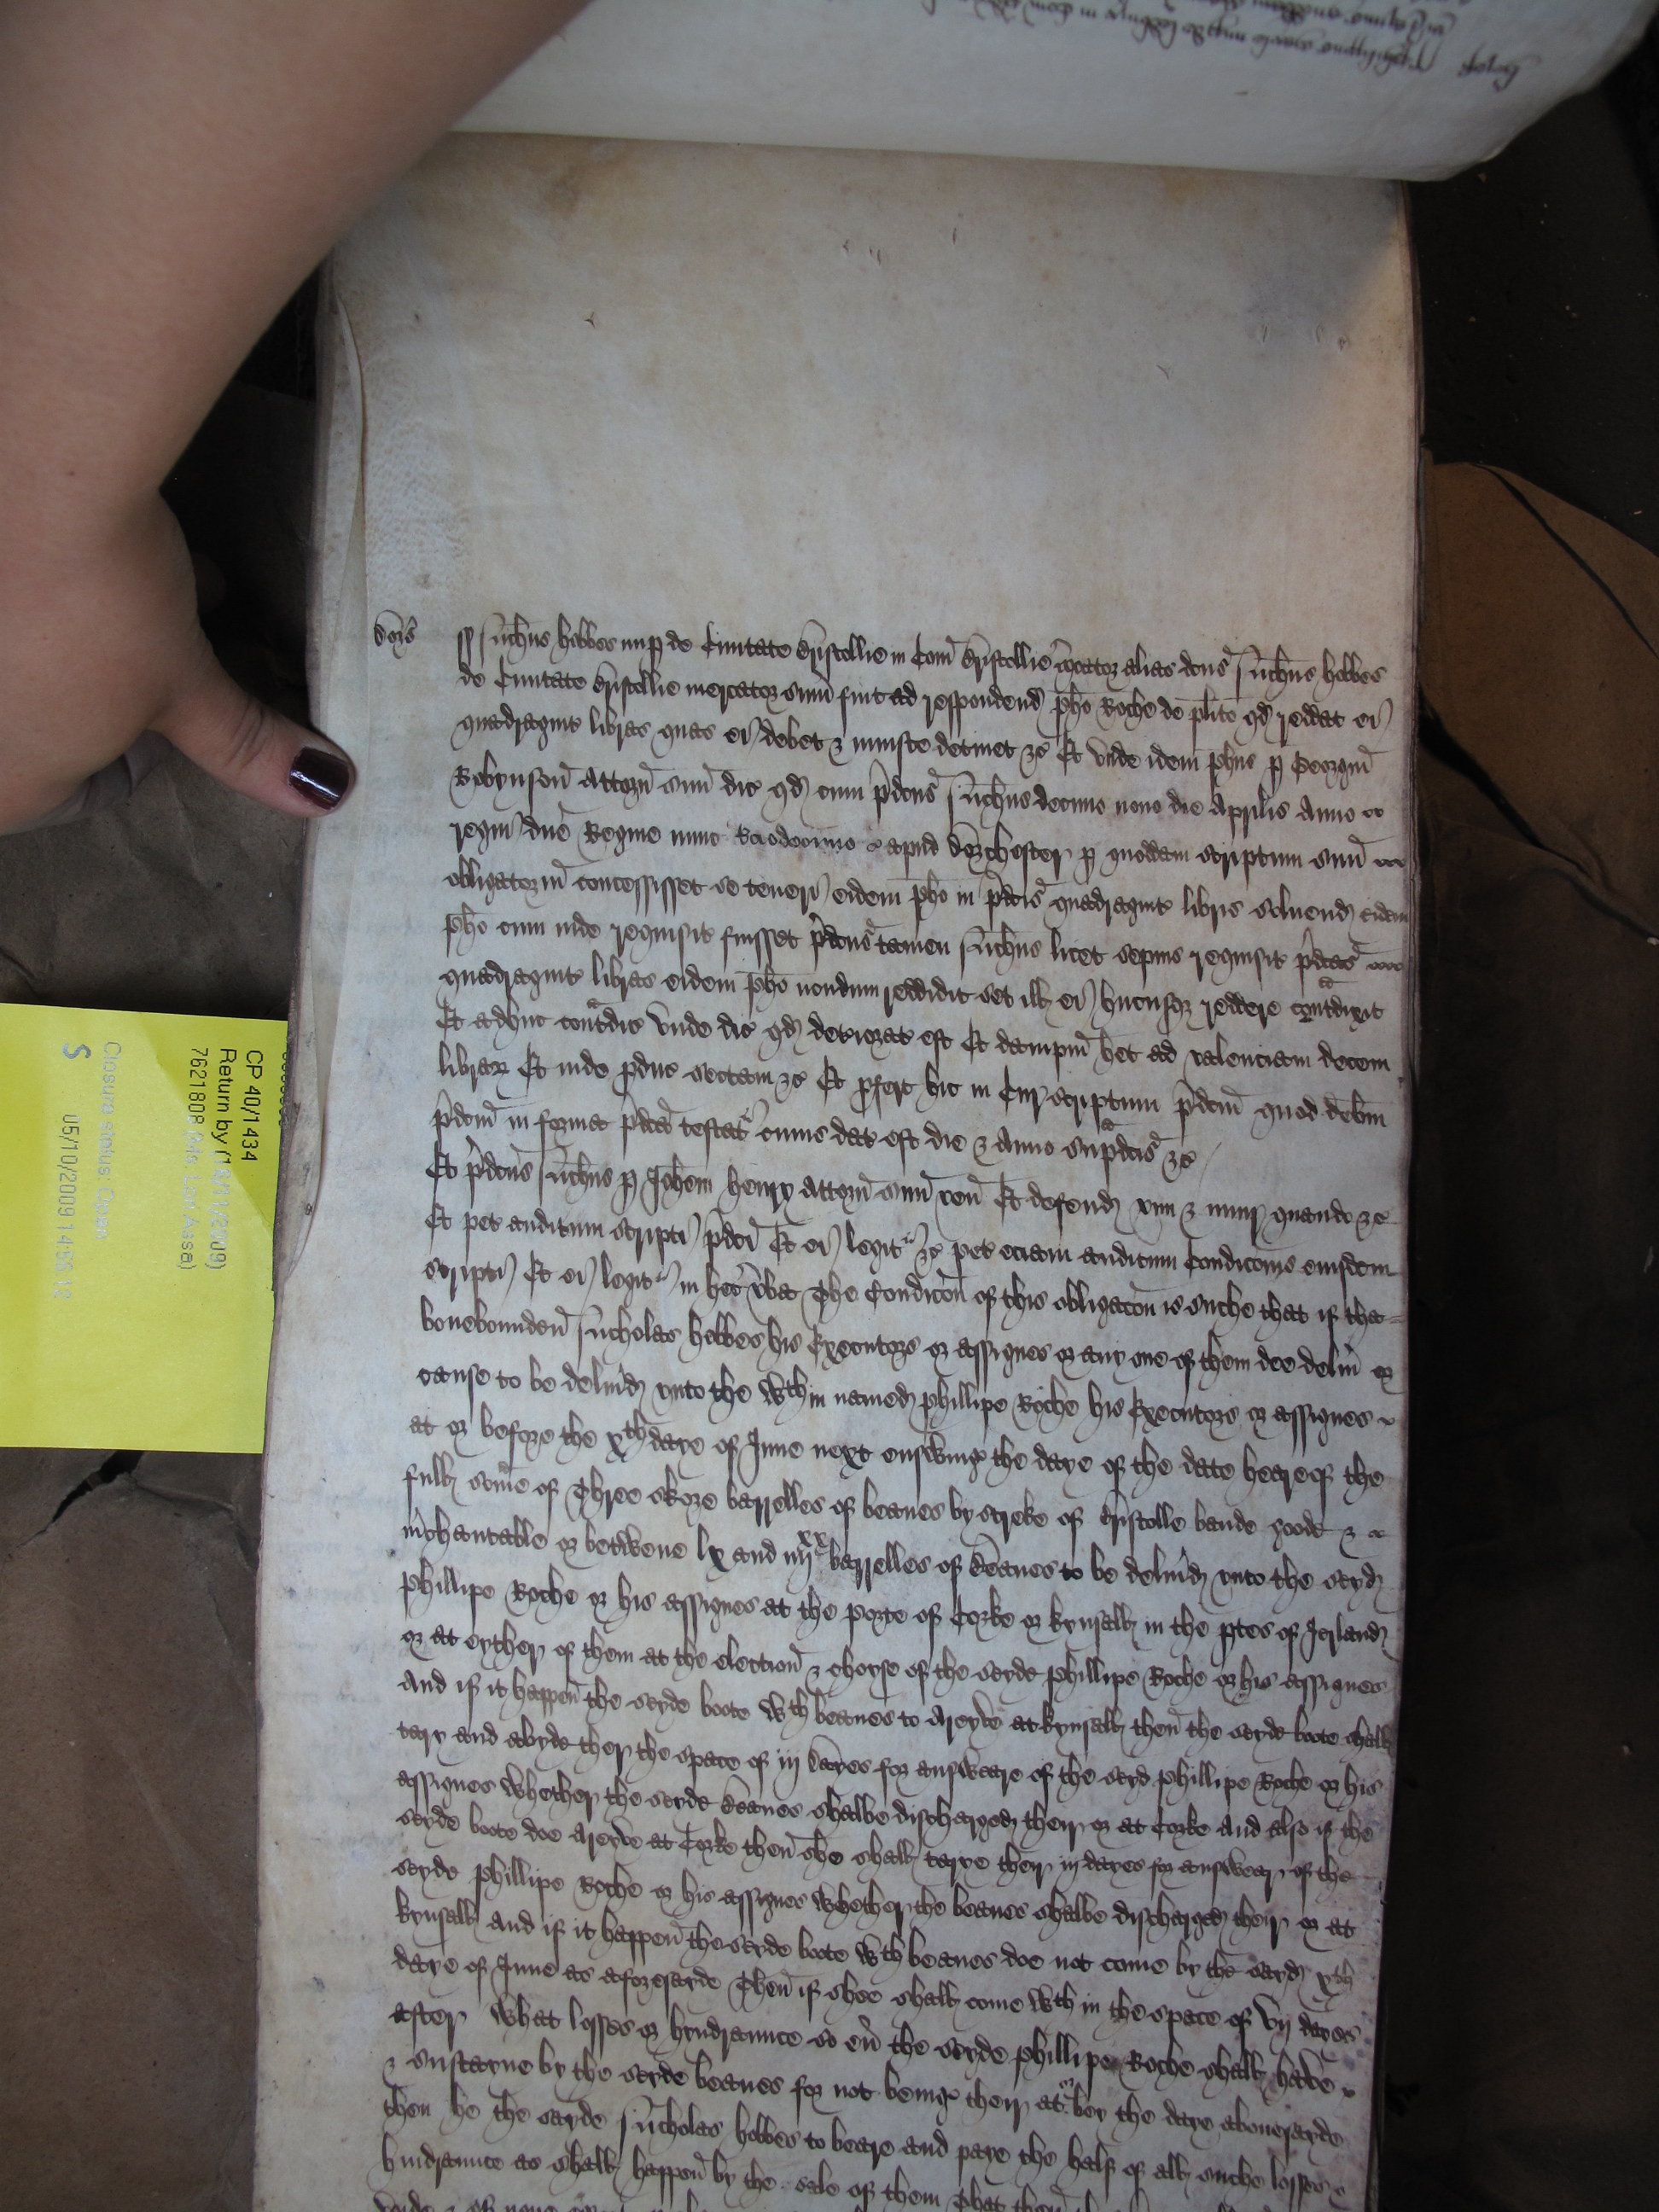 CP 40/1434
Return by (16/11/2009)
7621808 (Ms Lori Assa)
Closure status: Open
05/10/2009 14:56:12
S
Dors
ss Nichus Hobbes nup de Civitate Bristollie in Com Bristollie mcator alias dcus Nichus Hobbes
de Civitate Bristollie mercator sum fuit ad respondend Pho Roche de plito qd reddat ei
quadragint libras quas ei debet & iniuste detinet &c Et unde idem Phus p Georgiu
Robynson Attorn suu dic qd cum pdcus Nichus decimo nono die Aprilis Anno
regni dne Regine nunc apud Dorchester p quoddam scriptum suu
obligatoriu concessisset se teneri eidem Pho in pdcis quadragint libris solvend eidem
Pho cum inde requisit fuisset pdcus tamen Nichus licet sepius requisit pdcas
quadragint libras eidem Pho nondum reddidit set ill ei hucusq reddere contradixit
Et adhuc contradic unde dic qd deteriorat est Et dampnu het ad valenciam decem
librar Et inde pduc sectam &c Et pfert hic in Cur scriptum pdcm quod debm
pdcm in forma pdca testat cuius dat est die & Anno supadcis &c
Et pdcus Nichus p Johem Henry Attorn suu ven Et defend vim & iniur quando &c
Et pet auditum scripti pdci Et ei legit &c pet eciam auditum Condicois eiusdem
scripti Et ei legit in hec vba The Condicon of this obligacon is suche that if the
bovebounden Nicholas Hobbes his Executors or assignes or any one of them doe deliv or
cause to be delivd unto the wthin named Phillipe Roche his Executors or assignes
at or before the xth daye of June next ensewing the daye of the date heareof the
full some of Three skore barrelles of beanes by streke of Bristolle bande good &
mchantable or betwene lx and iiij xx barrelles of Beanes to be delivd unto the seyd
Phillipe Roche or his assignes at the porte of Corke or Kynsall in the ptes of Ierland
or at eyther of them at the election & choyse of the seyde Phillipe Roche or his assignes
And if it happen the seyde boote wth beanes to Aryve at Kynsall then the seyde boote shall
tary and abyde ther the space of iij dayes for answeare of the seyd Phillipe Roche or his
assignes whether the seyde Beanes shalbe discharged their or at Corke And also if the
seyde boote doe Aryve at Corke then she shall tarye their iij dayes for answear of the
seyde Phillipe Roche or his assignes whether the beanes shalbe discharged their or at
Kynsall And if it happen the seyde boote wth beanes doe not come by the seyd xth
daye of June as aforesayde Then if shee shall come wth in the space of vij dayes
after What losses or hyndraunce so ev the seyde Phillipe Roche shall have
& susteyne by the seyde beanes for not being their at or bey the daye abovesayde
then he the sayde Nicholas Hobbes to beare and paye the half of all suche losses
hindraunce as shall happen by the sale of them That then